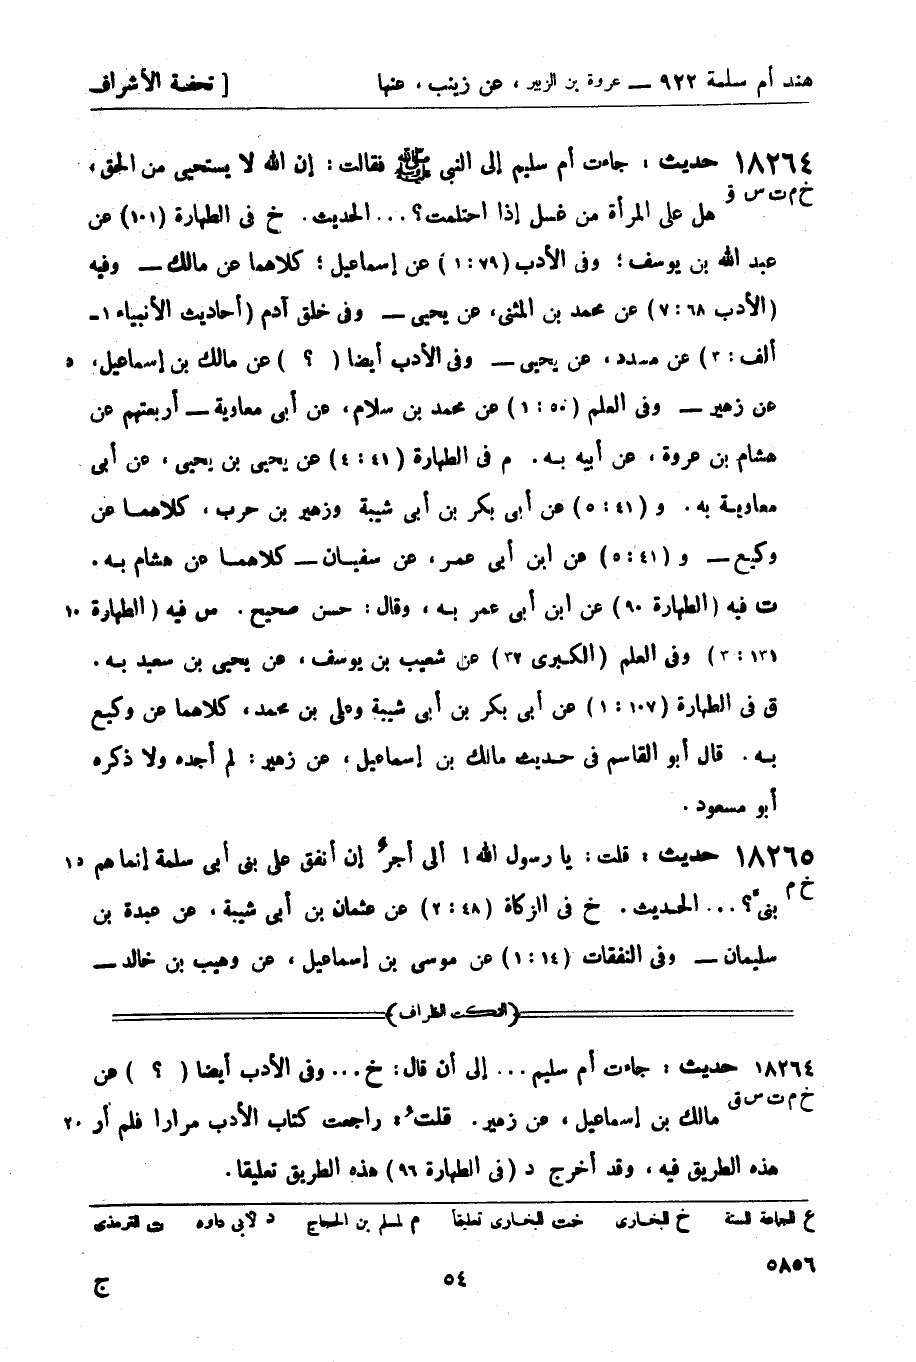 هند أم سلمة ٩٢٢ — عروة بن الزبير ، عن زينب ، عنها [ تحفة الأشراف
١٨٢٦٤ حديث : جاءت أم سليم إلى النبى ﷺ فقالت : إن الله لا يستحيى من الحق ،
خ م ت س ق هل على المرأة من غسل إذا احتلمت؟ ... الحديث . خ فى الطهارة (١٠١) عن
عبد الله بن يوسف ؛ وفى الأدب (٧٩ : ١) عن إسماعيل ؛ كلاهما عن مالك — وفيه
(الأدب ٦٨ : ٧) عن محمد بن المثنى، عن يحيى — وفى خلق آدم (أحاديث الأنبياء ١ -
ألف : ٣) عن مسدد ، عن يحيى — وفى الأدب أيضا ( ؟ ) عن مالك بن إسماعيل، ٥
عن زهير — وفى العلم (٥٠ : ١) عن محمد بن سلام، عن أبى معاوية — أربعتهم عن
هشام بن عروة ، عن أبيه بـه . م فى الطهارة (٤١ : ٤) عن يحيى بن يحيى ، عن أبى
معاويـة به . و (٤١ : ٥) عن أبى بكر بن أبى شيبة وزهير بن حرب ، كلاهمـا عن
وكيع — و (٤١ : ٥) عن ابن أبى عمر ، عن سفيـان — كلاهمـا عن هشام بـه .
ت فيه (الطهارة ٩٠) عن ابن أبى عمر بـه ، وقال : حسن صحيح . س فيه (الطهارة ١٠
١٣١ : ٣) وفى العلم (الكـبرى ٣٢) عن شعيب بن يوسف ، عن يحيى بن سعيد بـه .
ق فى الطهارة (١٠٧ : ١) عن أبى بكر بن أبى شيبة وعلى بن محمد، كلاهما عن وكيع
بـه . قال أبو القاسم فى حـديث مالك بن إسماعيل ، عن زهير : لم أجده ولا ذكره
أبو مسعود .
١٨٢٦٥ حديث : قلت : يا رسول الله ! ألى أجرٌ إن أنفق على بنى أبى سلمة إنما هم ١٥
خ م بنىّ؟ ... الحـديث . خ فى الزكاة (٤٨ : ٢) عن عثمان بن أبى شيبة ، عن عبدة بن
سليمان — وفى النفقات (١٤ : ١) عن موسى بن إسماعيل ، عن وهيب بن خالد —
(النكت الظراف)
١٨٢٦٤ حديث : جاءت أم سليم ... إلى أن قال : خ ... وفى الأدب أيضا ( ؟ ) عن
خ م ت س ق مالك بن إسماعيل ، عن زهير . قلتُ : راجعت كتاب الأدب مرارا فلم أر ٢٠
هذه الطريق فيه ، وقد أخرج د (فى الطهارة ٩٦) هذه الطريق تعليقا .
ع للجماعة الستة خ للبخـارى خت للبخـارى تعليقاً م لمسلم بن الحجـاج د لأبى داود ت للترمذى
٥٨٥٦
٥٤
ج